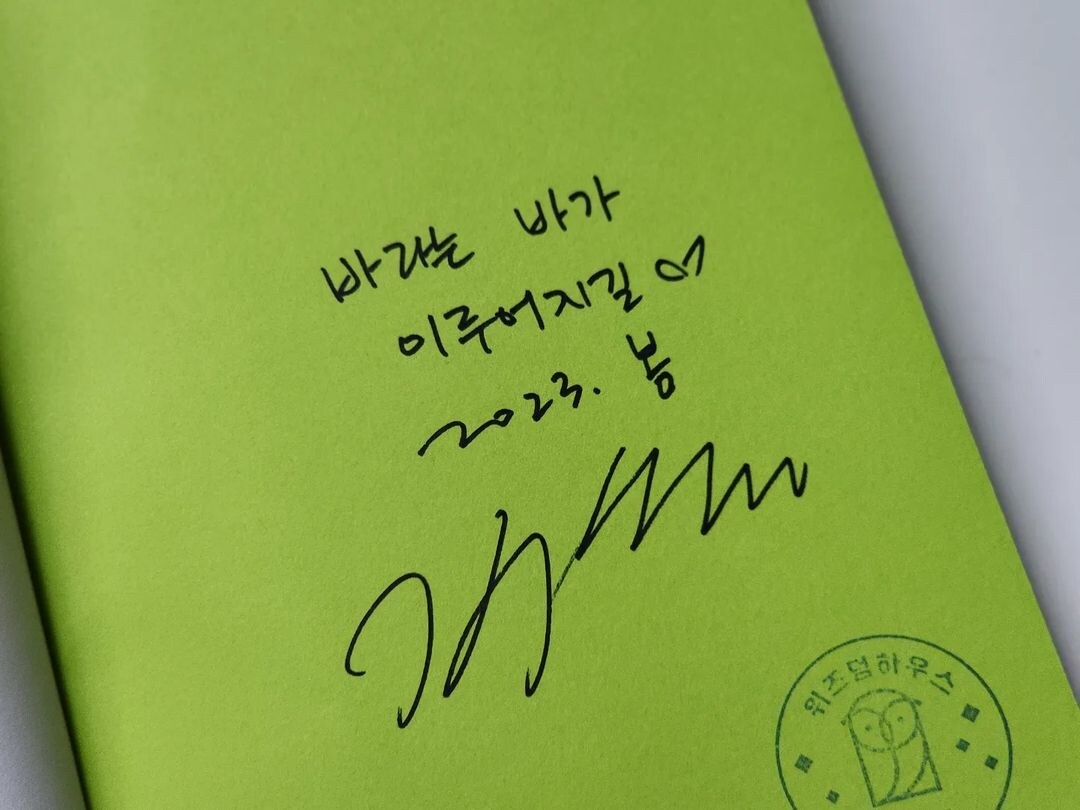 바라는 바가
이루어지길♡
2023. 봄
위즈덤하우스